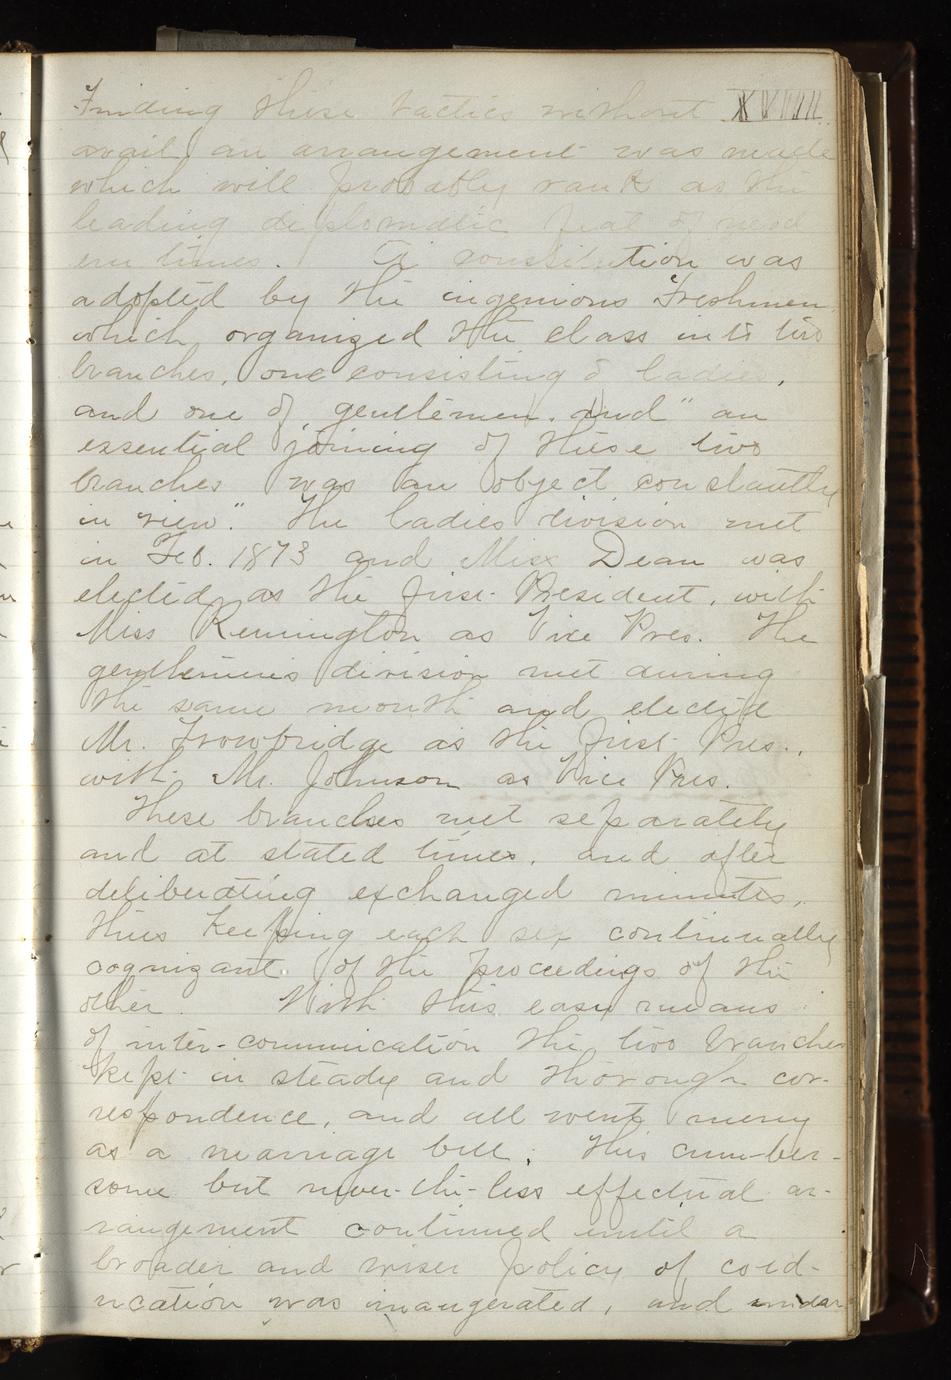 Finding these tactics without XVIIII
avail, an arrangement was made
which will probably rank as the
leading diplomatic feat of mod
ern times. A constitution was
adopted by the ingenious Freshmen
which organized the class into two
branches, one consisting of ladies,
and one of gentlemen. And "an
essential joining of these two
branches was an object constantly
in view." The ladies division met
in Feb. 1873 and Miss Dean was
elected as the first President, with
Miss Remington as Vice Pres. The
gentlemens division met during
the same month and elected
Mr. Trowbridge as the first Pres.,
with Mr. Johnson as Vice Pres.
These branches met separately
and at stated times, and after
deliberating exchanged minutes,
thus keeping each sex continually
cognizant of the proceedings of the
other. With this easy means
of inter-communication the two branches
kept in steady and thorough cor-
respondence, and all went merry
as a marriage bell. This cum-ber-
some but never-the-less effectual ar-
rangement continued until a
broader and wiser policy of coed-
ucation was inaugerated, and under